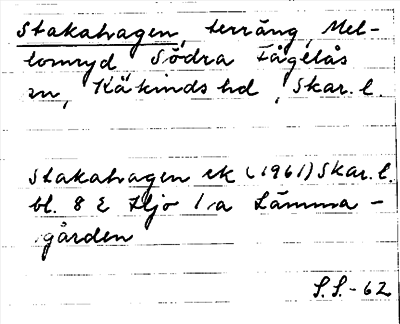 Stakahagen, terräng, Mel-
lomryd Södra Fågelås
sn, Käkinds hd, Skar. l.
Stakahagen ek (1961) Skar. l.
bl. 8 E Hjo 1 a Lämma-
gården
S.S.-62